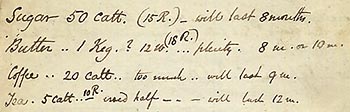 Sugar 50 catt. (15 R.) – will last 8 months.
Butter .. 1 Keg. ? 12 lb. (18 R.) ... plenty. 8 m. or 10 m.
Coffee .. 20 catt.. too much .. will last 9 m.
Tea. 5 catt.. 10 R. used half – – – will last 12 m.